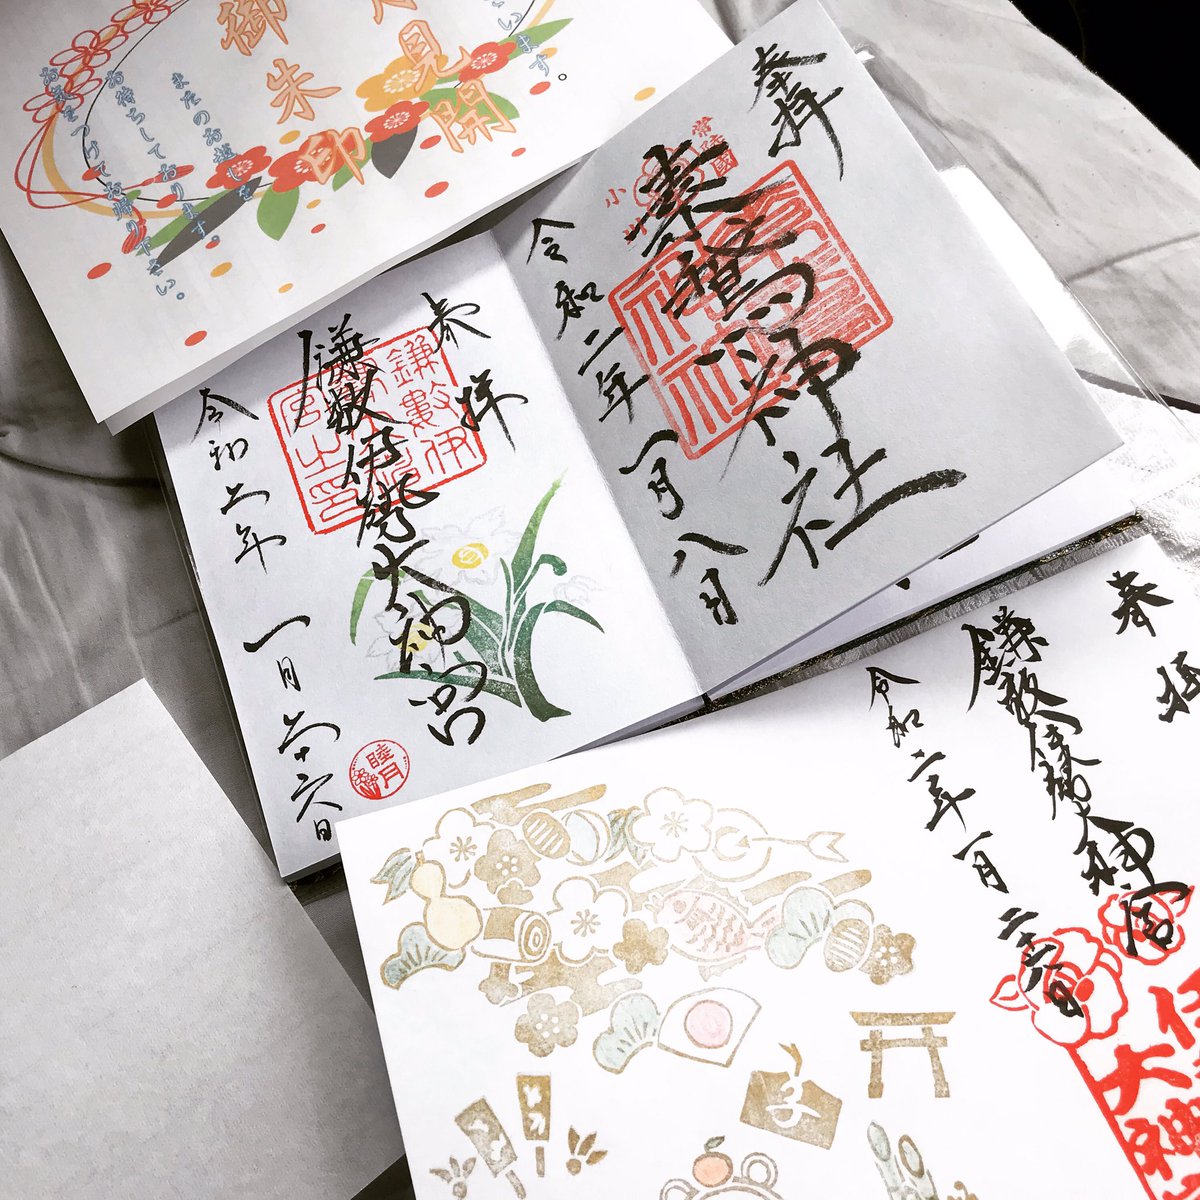 います。
見開
御朱印
またのお越しを
お待ちしております。
お気をつけてお帰り下さい。
奉拝
常陸國
素鵞神社
小川
令和二年一月八日
奉拝
鎌數伊
鎌数伊勢大神宮
令和二年 一月二十六日
睦月
奉拝
鎌数伊勢大神宮
令和二年一月二十六日
大神
子